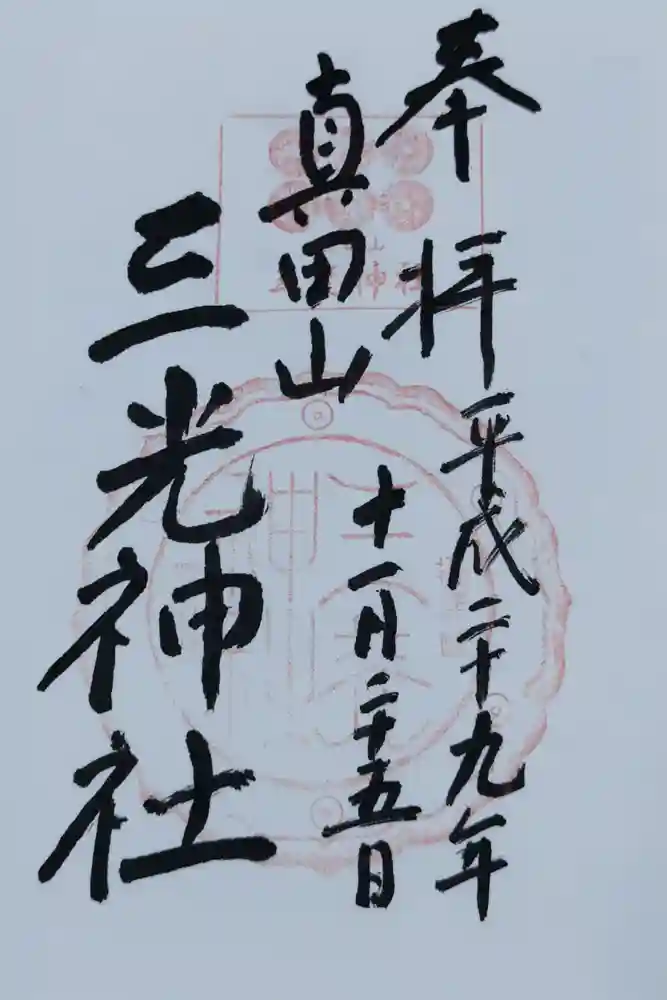 奉拝
平成二十九年
真田山
十一月二十五日
三光神社